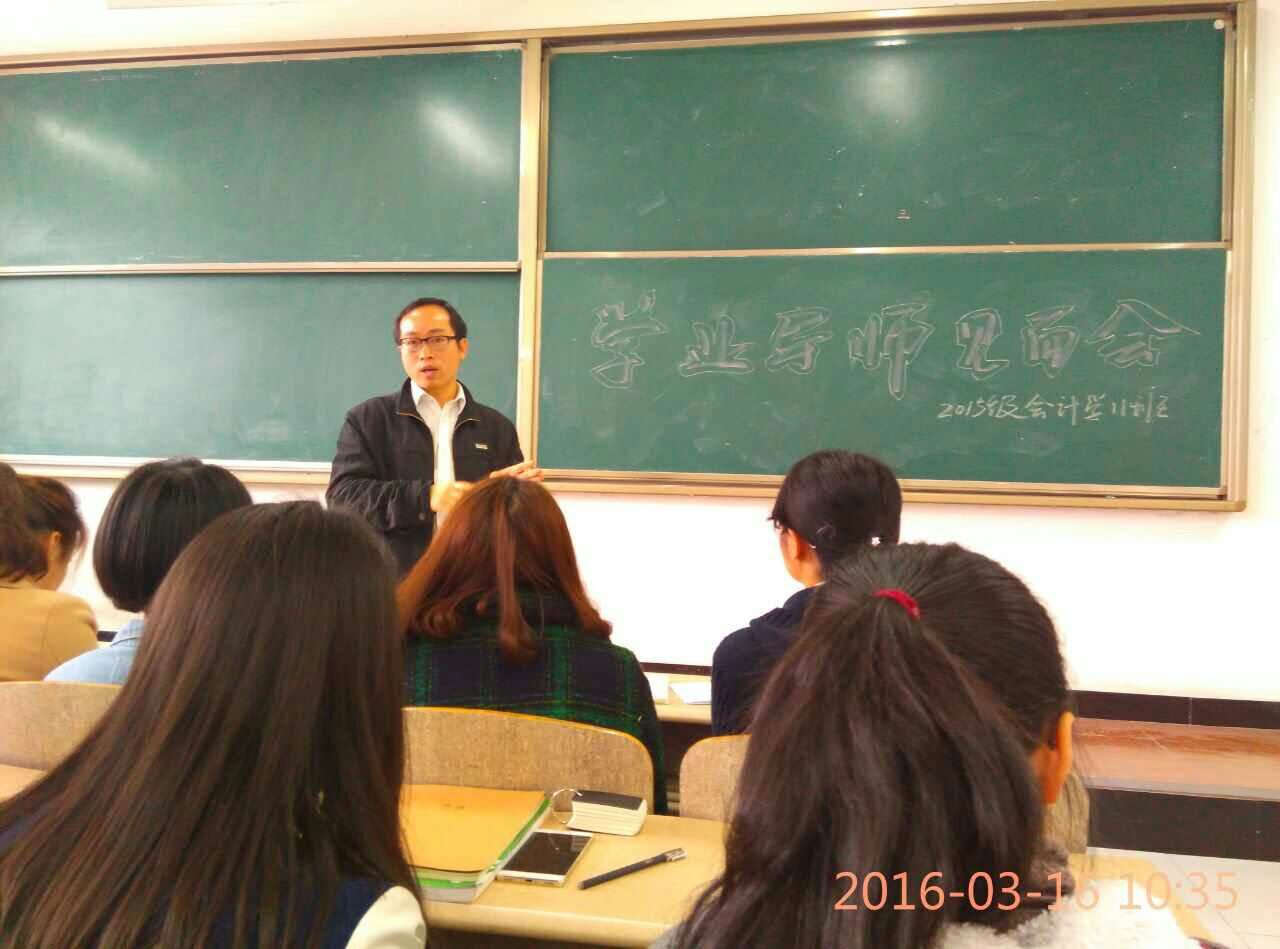 学业导师见面会
2015级会计学11班
2016-03-16 10:35